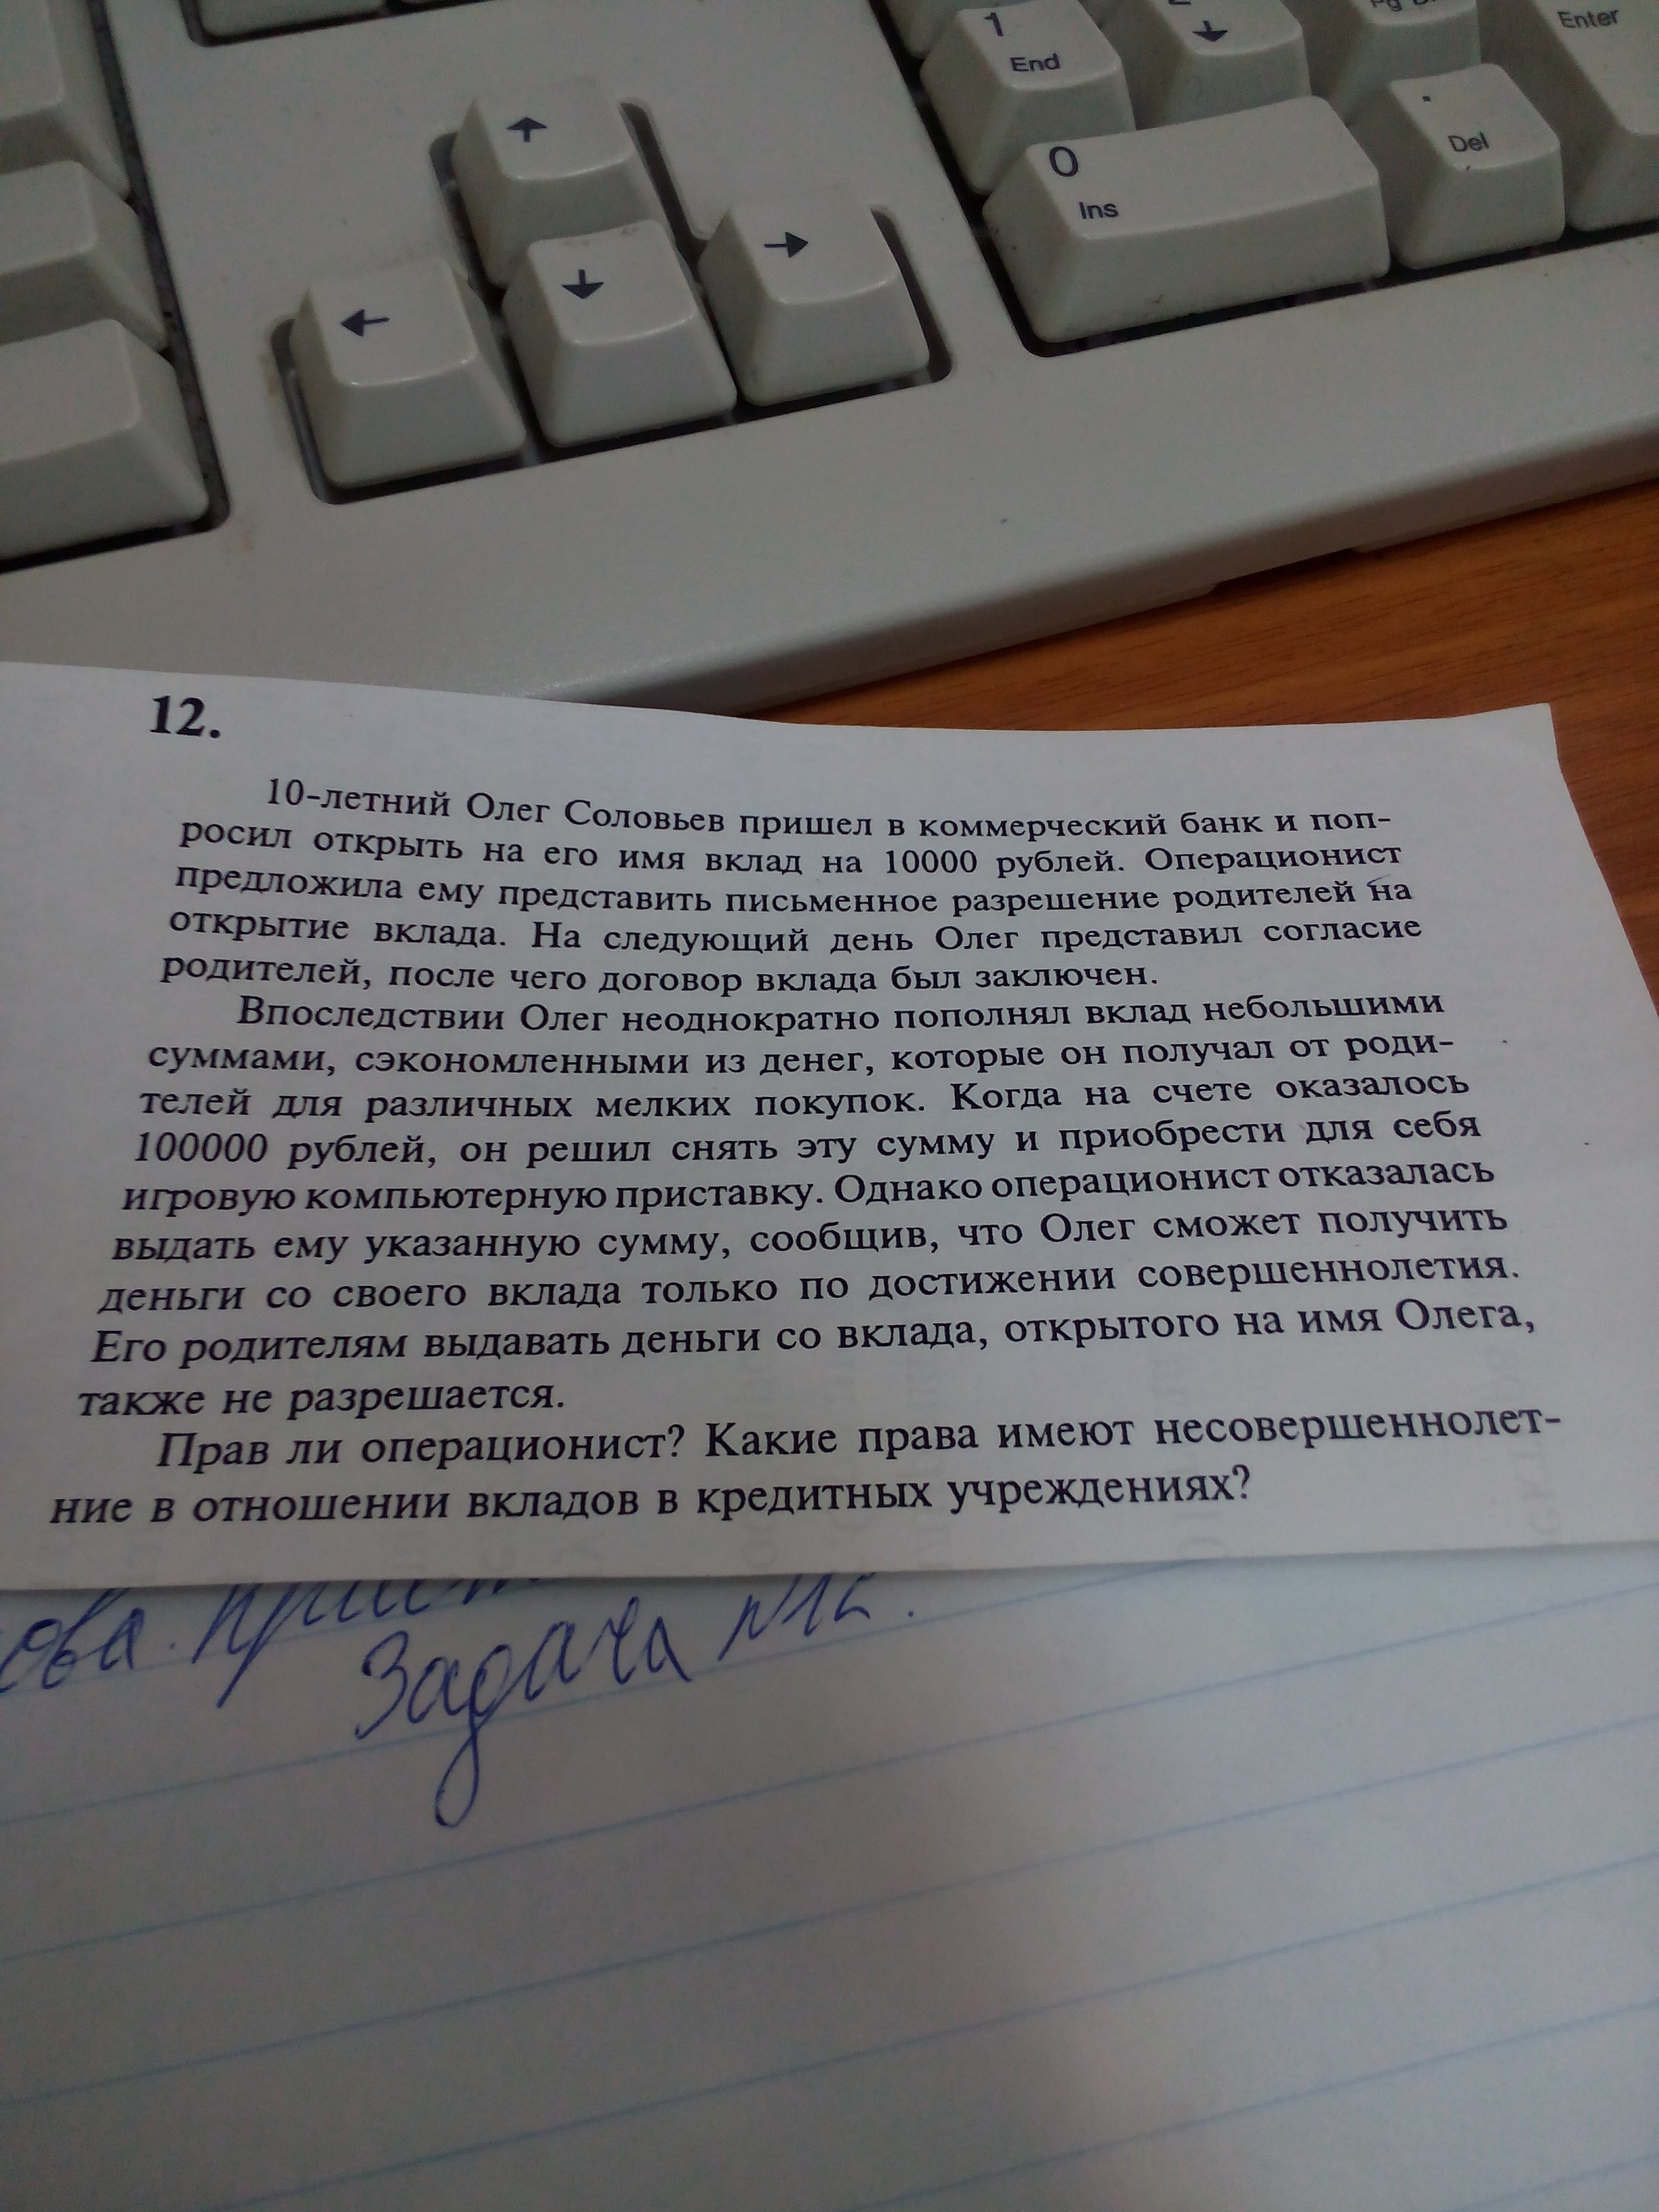 1
End
↓
Enter
0
Ins
.
Del
↑
←
↓
→
12.
10-летний Олег Соловьев пришел в коммерческий банк и поп-
росил открыть на его имя вклад на 10000 рублей. Операционист
предложила ему представить письменное разрешение родителей на
открытие вклада. На следующий день Олег представил согласие
родителей, после чего договор вклада был заключен.
Впоследствии Олег неоднократно пополнял вклад небольшими
суммами, сэкономленными из денег, которые он получал от роди-
телей для различных мелких покупок. Когда на счете оказалось
100000 рублей, он решил снять эту сумму и приобрести для себя
игровую компьютерную приставку. Однако операционист отказалась
выдать ему указанную сумму, сообщив, что Олег сможет получить
деньги со своего вклада только по достижении совершеннолетия.
Его родителям выдавать деньги со вклада, открытого на имя Олега,
также не разрешается.
Прав ли операционист? Какие права имеют несовершеннолет-
ние в отношении вкладов в кредитных учреждениях?
Задача №12.